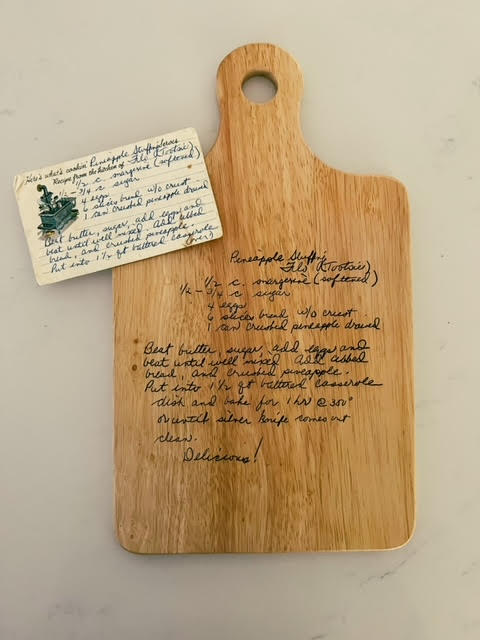 Here's what's cookin' Pineapple Stuffing
Recipe from the kitchen of Flo (Tootsie)
1/2 c. margarine (softened)
1/2 - 3/4 c sugar
4 eggs
6 slices bread w/o crust
1 can crushed pineapple drained
Beat butter, sugar, add eggs and
beat until well mixed. Add cubed
bread, and crushed pineapple.
Put into 1 1/2 qt buttered casserole
(over)
Pineapple Stuffin
Flo (Tootsie)
1/2 c. margarine (softened)
1/2 - 3/4 c sugar
4 eggs
6 slices bread w/o crust
1 can crushed pineapple drained
Beat butter, sugar, add eggs and
beat until well mixed Add cubbed
bread, and crushed pineapple.
Put into 1 1/2 qt buttered casserole
dish and bake for 1 hr @ 300°
or until silver knife comes out
clean.
Delicious!